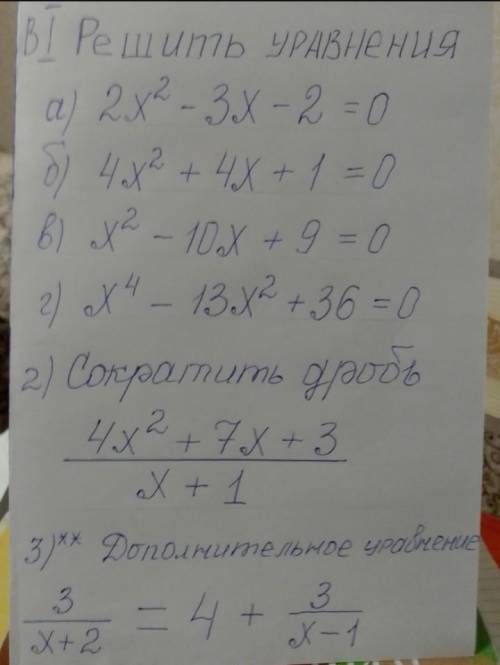 ВI Решить уравнения
а) 2x² - 3x - 2 = 0
б) 4x² + 4x + 1 = 0
в) x² - 10x + 9 = 0
г) x⁴ - 13x² + 36 = 0
2) Сократить дробь
4x² + 7x + 3
x + 1
3)** Дополнительное уравнение
3/(x+2) = 4 + 3/(x-1)